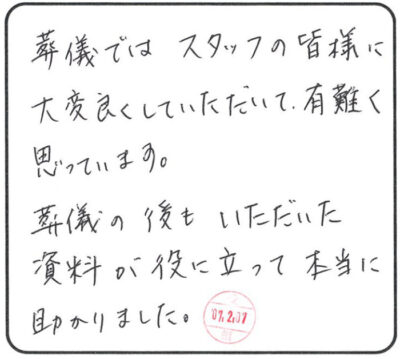 葬儀では スタッフの皆様に
大変良くしていただいて、有難く
思っています。
葬儀の後も いただいた
資料が役に立って 本当に
助かりました。
07.2.07